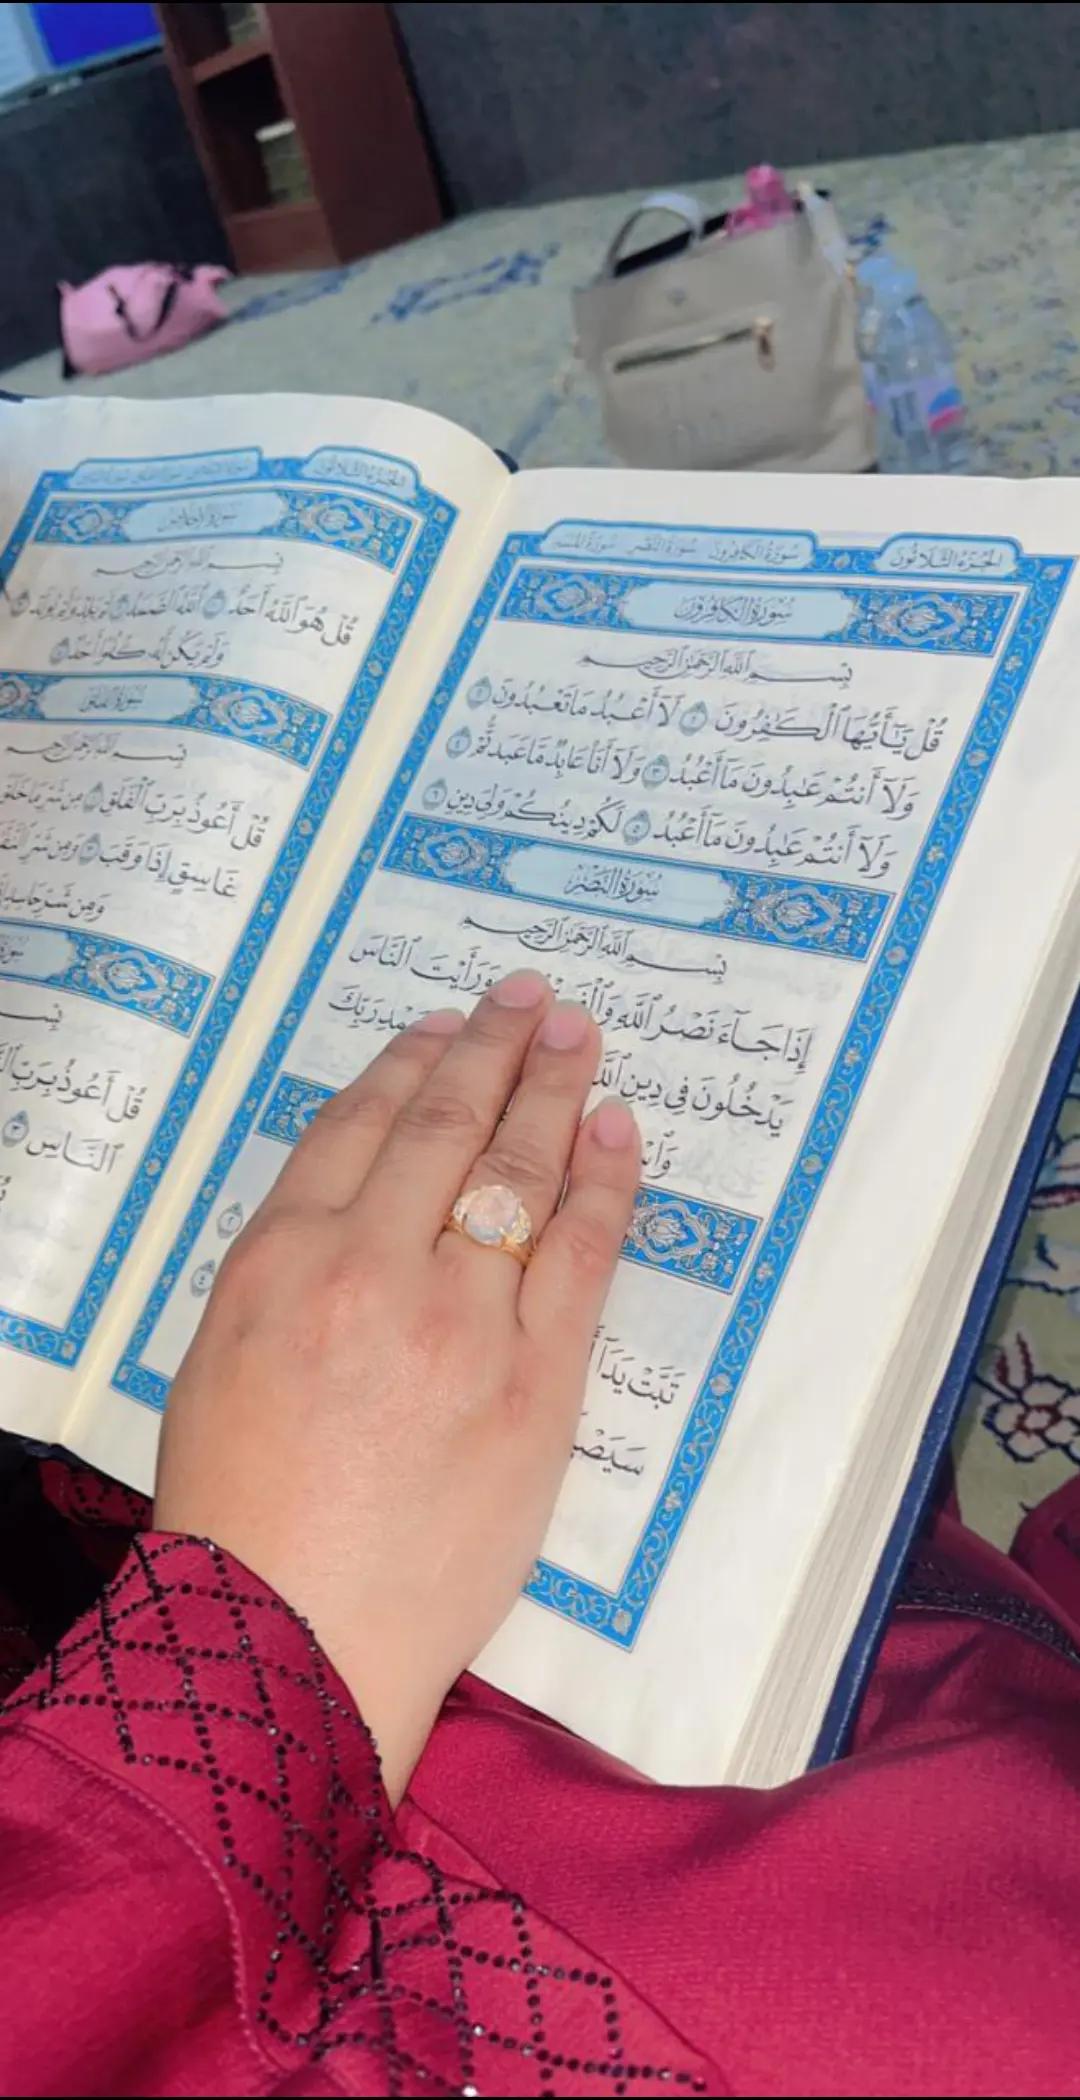 الجزء الثلاثون
سورة الكافرون سورة النصر سورة المسد
سُورَةُ الكَافِرُونَ
بِسْمِ ٱللَّهِ ٱلرَّحْمَٰنِ ٱلرَّحِيمِ
قُلْ يَٰٓأَيُّهَا ٱلْكَٰفِرُونَ ١ لَآ أَعْبُدُ مَا تَعْبُدُونَ ٢
وَلَآ أَنتُمْ عَٰبِدُونَ مَآ أَعْبُدُ ٣ وَلَآ أَنَا۠ عَابِدٌ مَّا عَبَدتُّمْ ٤
وَلَآ أَنتُمْ عَٰبِدُونَ مَآ أَعْبُدُ ٥ لَكُمْ دِينُكُمْ وَلِىَ دِينِ ٦
سُورَةُ النَّصْرِ
بِسْمِ ٱللَّهِ ٱلرَّحْمَٰنِ ٱلرَّحِيمِ
إِذَا جَآءَ نَصْرُ ٱللَّهِ وَرَأَيْتَ ٱلنَّاسَ
يَدْخُلُونَ فِى دِينِ رَبِّكَ
تَبَّتْ يَدَآ
الجزء الثلاثون
سورة الإخلاص
بِسْمِ ٱللَّهِ ٱلرَّحْمَٰنِ ٱلرَّحِيمِ
قُلْ هُوَ ٱللَّهُ أَحَدٌ ١ ٱللَّهُ ٱلصَّمَدُ ٢ لَمْ يَلِدْ وَلَمْ يُولَدْ ٣
وَلَمْ يَكُن لَّهُۥ كُفُوًا أَحَدٌۢ ٤
سورة الفلق
بِسْمِ ٱللَّهِ ٱلرَّحْمَٰنِ ٱلرَّحِيمِ
قُلْ أَعُوذُ بِرَبِّ ٱلْفَلَقِ ١ مِن شَرِّ مَا خَلَقَ
غَاسِقٍ إِذَا وَقَبَ ٣ وَمِن شَرِّ
وَمِن شَرِّ حَاسِدٍ
سورة
قُلْ أَعُوذُ بِرَبِّ
ٱلنَّاسِ ٣